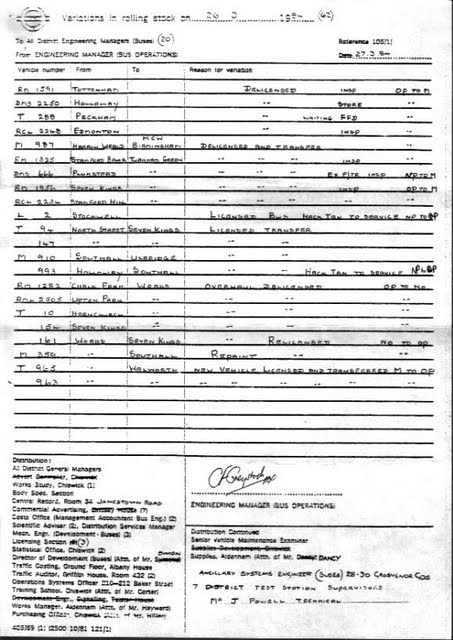 Variations in rolling stock on 26 3 1984 (62)
To All District Engineering Managers (Buses) (20) Reference 105/1/
From ENGINEERING MANAGER (BUS OPERATIONS) Date 27.3.84
Vehicle number From To Reason for variation
RM 1591 TOTTENHAM DELICENSED INSP OP TO M
DMS 2250 HOLLOWAY " STORE
T 288 PECKHAM " WAITING FFD
RCL 2248 EDMONTON " INSP
M 987 HARROW WEALD MCW BIRMINGHAM DELICENSED AND TRANSFER
RM 1325 STAMFORD BROOK TURNHAM GREEN " " " INSP "
DMS 666 PLUMSTEAD " " EX P/TR INSP NP TO M
RM 1956 SEVEN KINGS " " INSP OP TO M
RCL 2234 STAMFORD HILL " " " "
L 2 STOCKWELL LICENSED BUS HACK TRN TO SERVICE NP TO OP
T 94 NORTH STREET SEVEN KINGS LICENSED TRANSFER
147 " " " "
M 910 SOUTHALL UXBRIDGE " "
993 HOLLOWAY SOUTHALL " " HACK TRN TO SERVICE NP TO OP
RM 1282 CHALK FARM WORKS OVERHAUL DELICENSED OP TO NO
RML 2505 UPTON PARK " " " "
T 10 HORNCHURCH " " " "
154 SEVEN KINGS " " " "
161 WORKS SEVEN KINGS " RELICENSED NO TO OP
M 359 " SOUTHALL REPAINT " "
T 965 " WALWORTH NEW VEHICLE LICENSED AND TRANSFERRED M TO OP
963 " " " " " " " "
Distribution:
All District General Managers
Advert Controller, Chiswick
Works Study, Chiswick (1)
Body Spec. Section
Central Record, Room 34 JAMESTOWN ROAD
Commercial Advertising, House (7)
Costs Office (Management Accountant Bus Eng.) (2)
Scientific Adviser (2), Distribution Services Baker Street
Mech. Engr. (Development - Buses) (3)
Licensing Section (3)
Statistical Office, Chiswick (2)
Director of Development (Buses) (Attn. of Mr. SIMMON
Traffic Costing, Ground Floor, Albany House
Traffic Auditor, Griffith House, Room 432 (2)
Operations Systems Officer 210-212 Baker Street
Training School, Chiswick (Attn. of Mr. Carter)
Development Engr. Signalling,
Works Manager, Aldenham (Attn. of Mr. Hayward)
Purchasing Officer, Chiswick (Attn. of Mr. Hiller)
403/69 (1) (2500 10/81 121/1)
ENGINEERING MANAGER (BUS OPERATIONS)
Distribution Continued
Senior Vehicle Maintenance Examiner
Supplies Development, Chiswick
Supplies, Aldenham (Attn. of Mr. DANCY
ANCILLARY SYSTEMS ENGINEER (BUSES) 28-30 GROSVENOR GDS
7 DISTRICT TEST STATION SUPERVISORS
MR J POWELL TECHNICAN